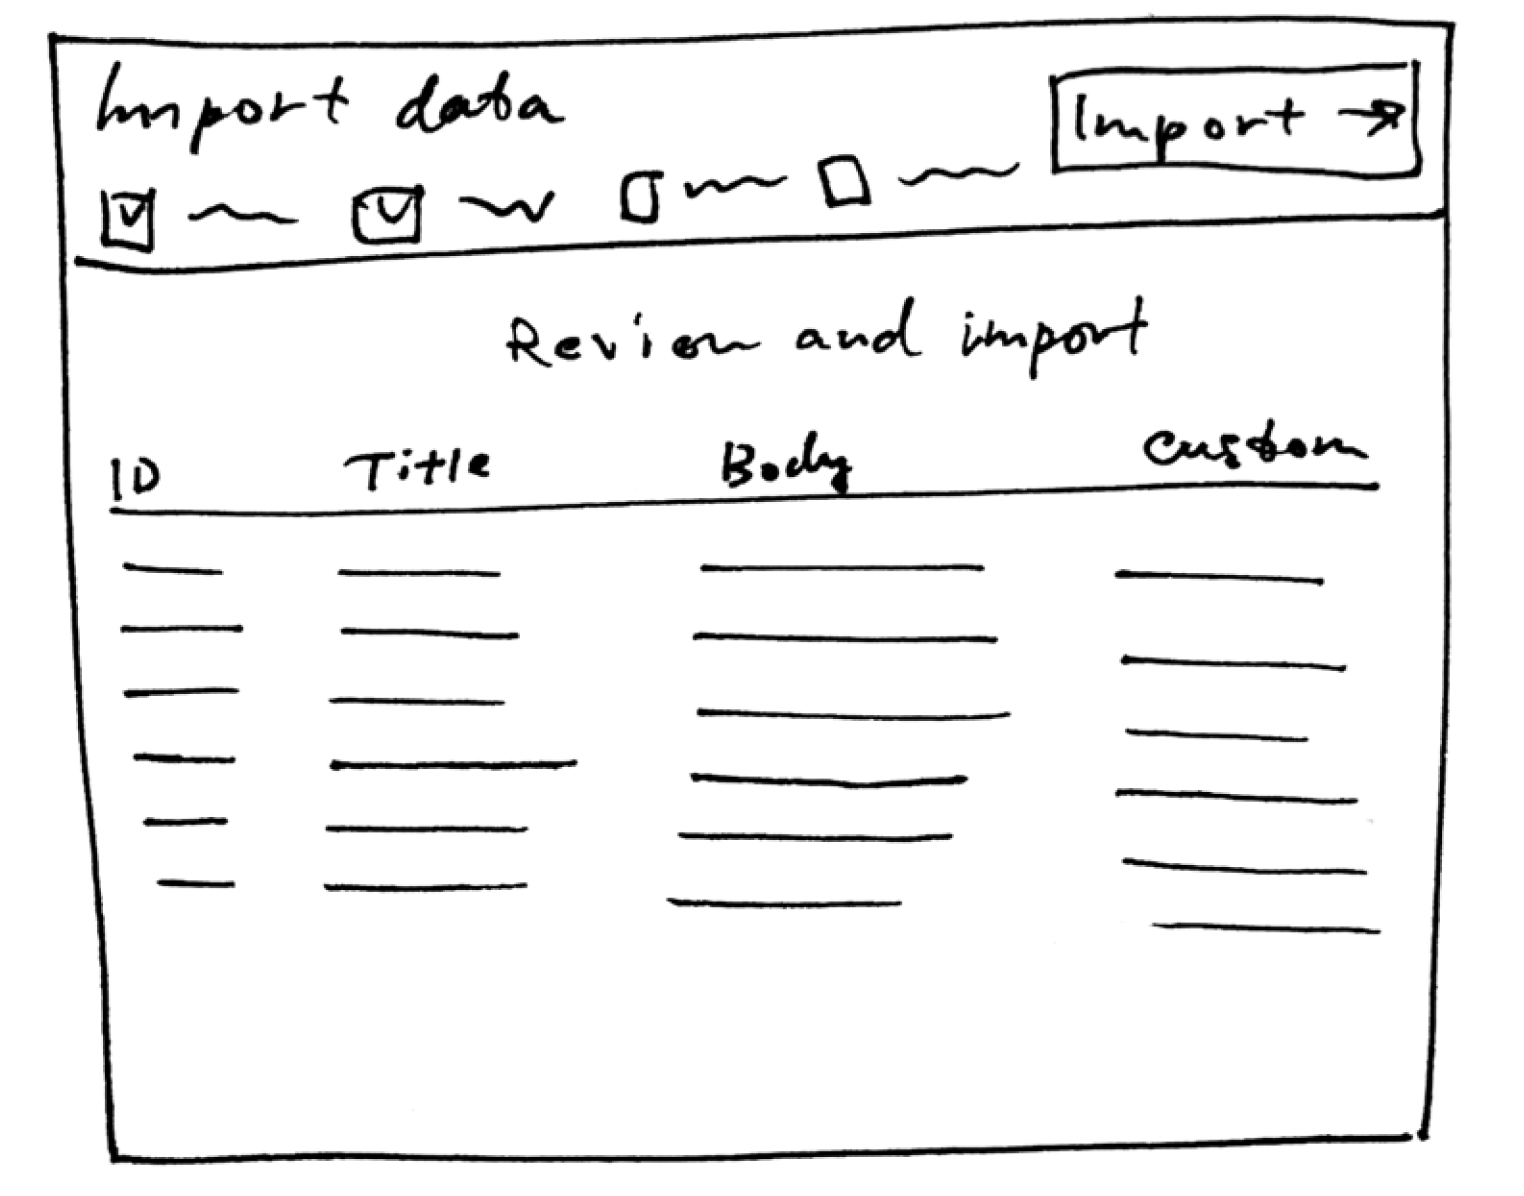 Import data
Import →
Review and import
ID Title Body Custom